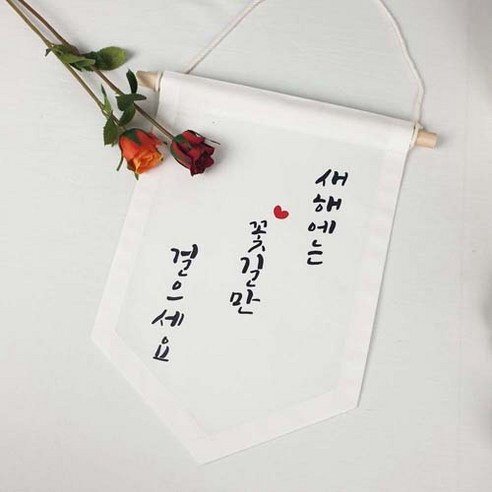 새해에는
꽃길만
걸으세요